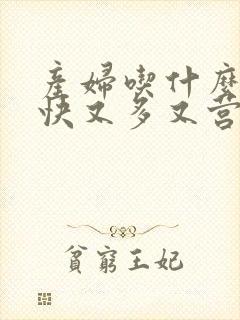 産婦喫什麼
快又多又营
貧窮王妃